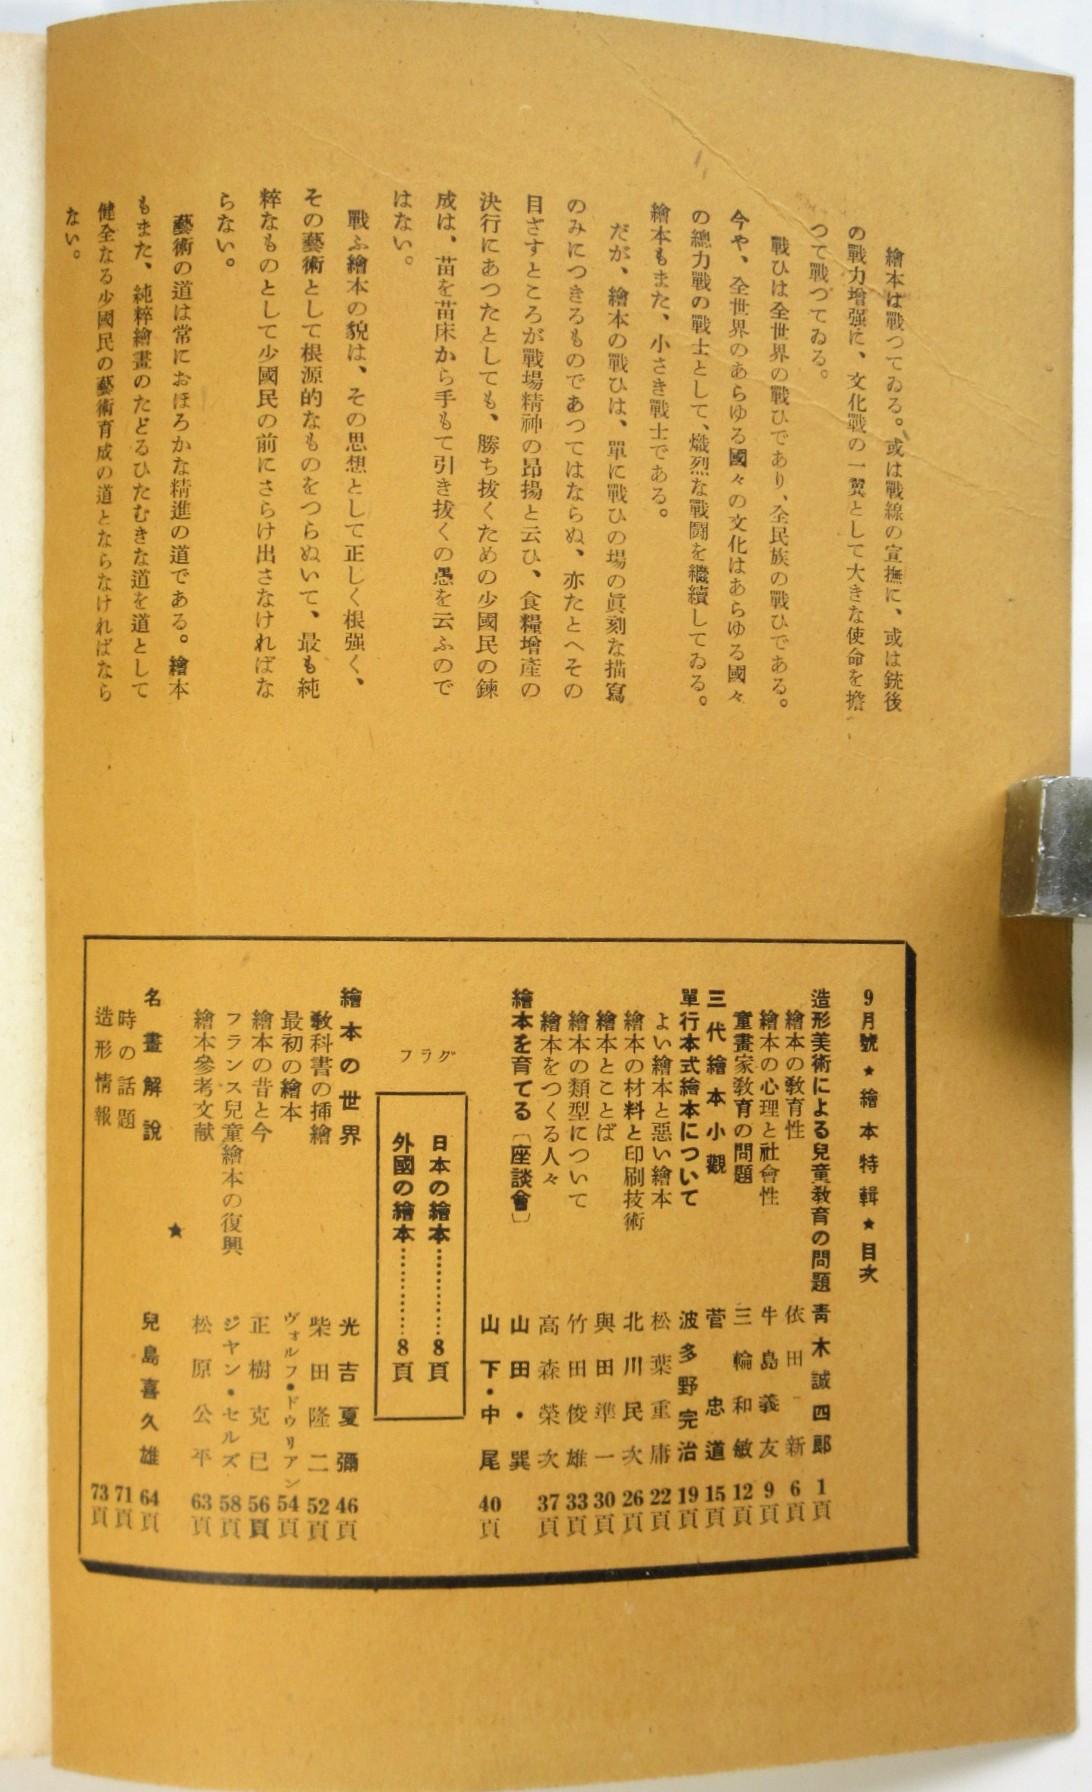 繪本は戰つてゐる。或は戰線の宣撫に、或は銃後
の戰力增强に、文化戰の一翼として大きな使命を擔
つて戰つてゐる。
戰ひは全世界の戰ひであり、全民族の戰ひである。
今や、全世界のあらゆる國々の文化はあらゆる國々
の總力戰の戰士として、熾烈な戰鬪を繼續してゐる。
繪本もまた、小さき戰士である。
だが、繪本の戰ひは、單に戰ひの場の眞刻な描寫
のみにつきるものであつてはならぬ、亦たとへその
目ざすところが戰場精神の昂揚と云ひ、食糧增產の
決行にあつたとしても、勝ち拔くための少國民の鍊
成は、苗を苗床から手もて引き拔くの愚を云ふので
はない。
戰ふ繪本の貌は、その思想として正しく根强く、
その藝術として根源的なものをつらぬいて、最も純
粹なものとして少國民の前にさらけ出さなければな
らない。
藝術の道は常におほろかな精進の道である。繪本
もまた、純粹繪畫のたどるひたむきな道を道として
健全なる少國民の藝術育成の道とならなければなら
ない。
9月號★繪本特輯★目次
造形美術による兒童教育の問題 靑木誠四郞 1頁
繪本の敎育性 依田新 6頁
繪本の心理と社會性 牛島義友 9頁
童畫家敎育の問題 三輪和敏 12頁
三代繪本小觀 菅忠道 15頁
單行本式繪本について 波多野完治 19頁
よい繪本と惡い繪本 松葉重庸 22頁
繪本の材料と印刷技術 北川民次 26頁
繪本とことば 與田準一 30頁
繪本の類型について 竹田俊雄 33頁
繪本をつくる人々 高森榮次 37頁
繪本を育てる〔座談會〕 山田・巽
山下・中尾 40頁
グラフ
日本の繪本…………8頁
外國の繪本…………8頁
繪本の世界 光吉夏彌 46頁
敎科書の揷繪 柴田隆二 52頁
最初の繪本 ヴォルフ・ドゥリアン 54頁
繪本の昔と今 正樹克巳 56頁
フランス兒童繪本の復興 ジヤン・セルズ 58頁
繪本參考文献 松原公平 63頁
★
名畫解說 兒島喜久雄 64頁
時の話題 71頁
造形情報 73頁